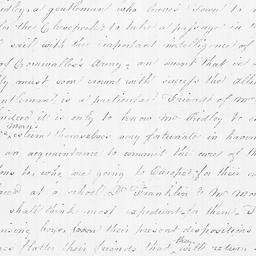 Ridley, a gentleman who leaves Town to
for the Chesapeak, to take a passage in
sail with the important intelligence of
of Cornwallis's Army, an event that
must soon crown with success the Allie
gentleman is a particular Friend of Mr
it is only to know Mr Ridley to
may esteem themselves very fortunate in having
an acquaintance to commit the care of th
to, who are going to Europe for their
at a school Dr Franklin & Mr
shall think most expedient for them. I
their present dispositions
flatter their friends that they will return